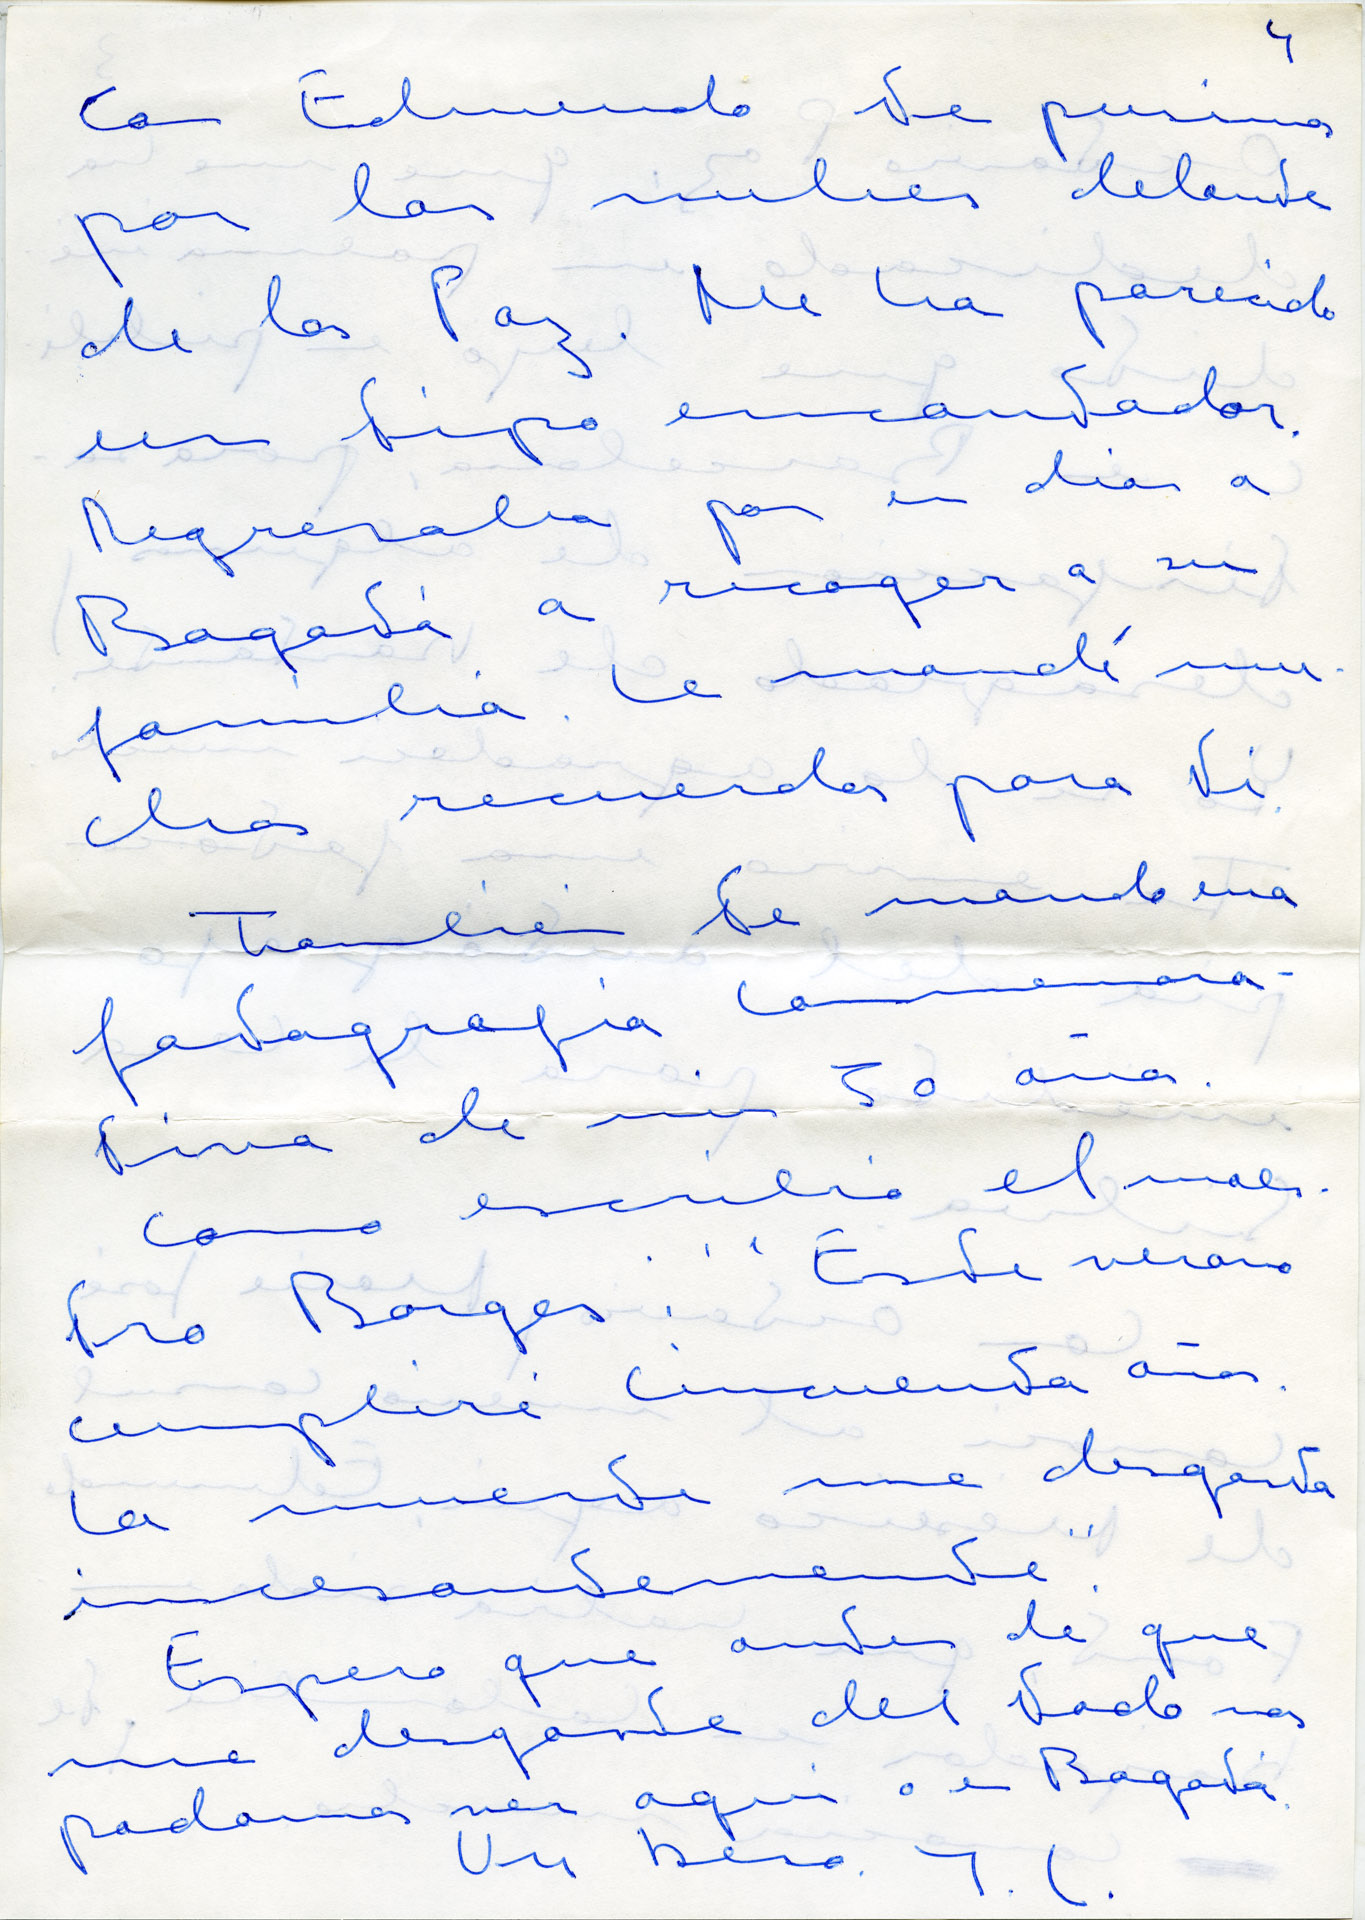 4
Con Edmundo te pusimos
por las nubes delante
de los Paz. Me ha parecido
un tipo encantador.
Regresaba por un días a
Bogotá a recoger a su
familia. Le mandé mu-
chos recuerdos para ti.
También te mando una
fotografía conmemora-
tiva de mis 50 años.
Como escribió el maes-
tro Borges: "Este verano
cumpliré cincuenta años.
La muerte me desgasta
incesantemente".
Espero que antes de que
me desgaste del todo nos
podamos ver aquí o en Bogotá.
Un beso. J. C.